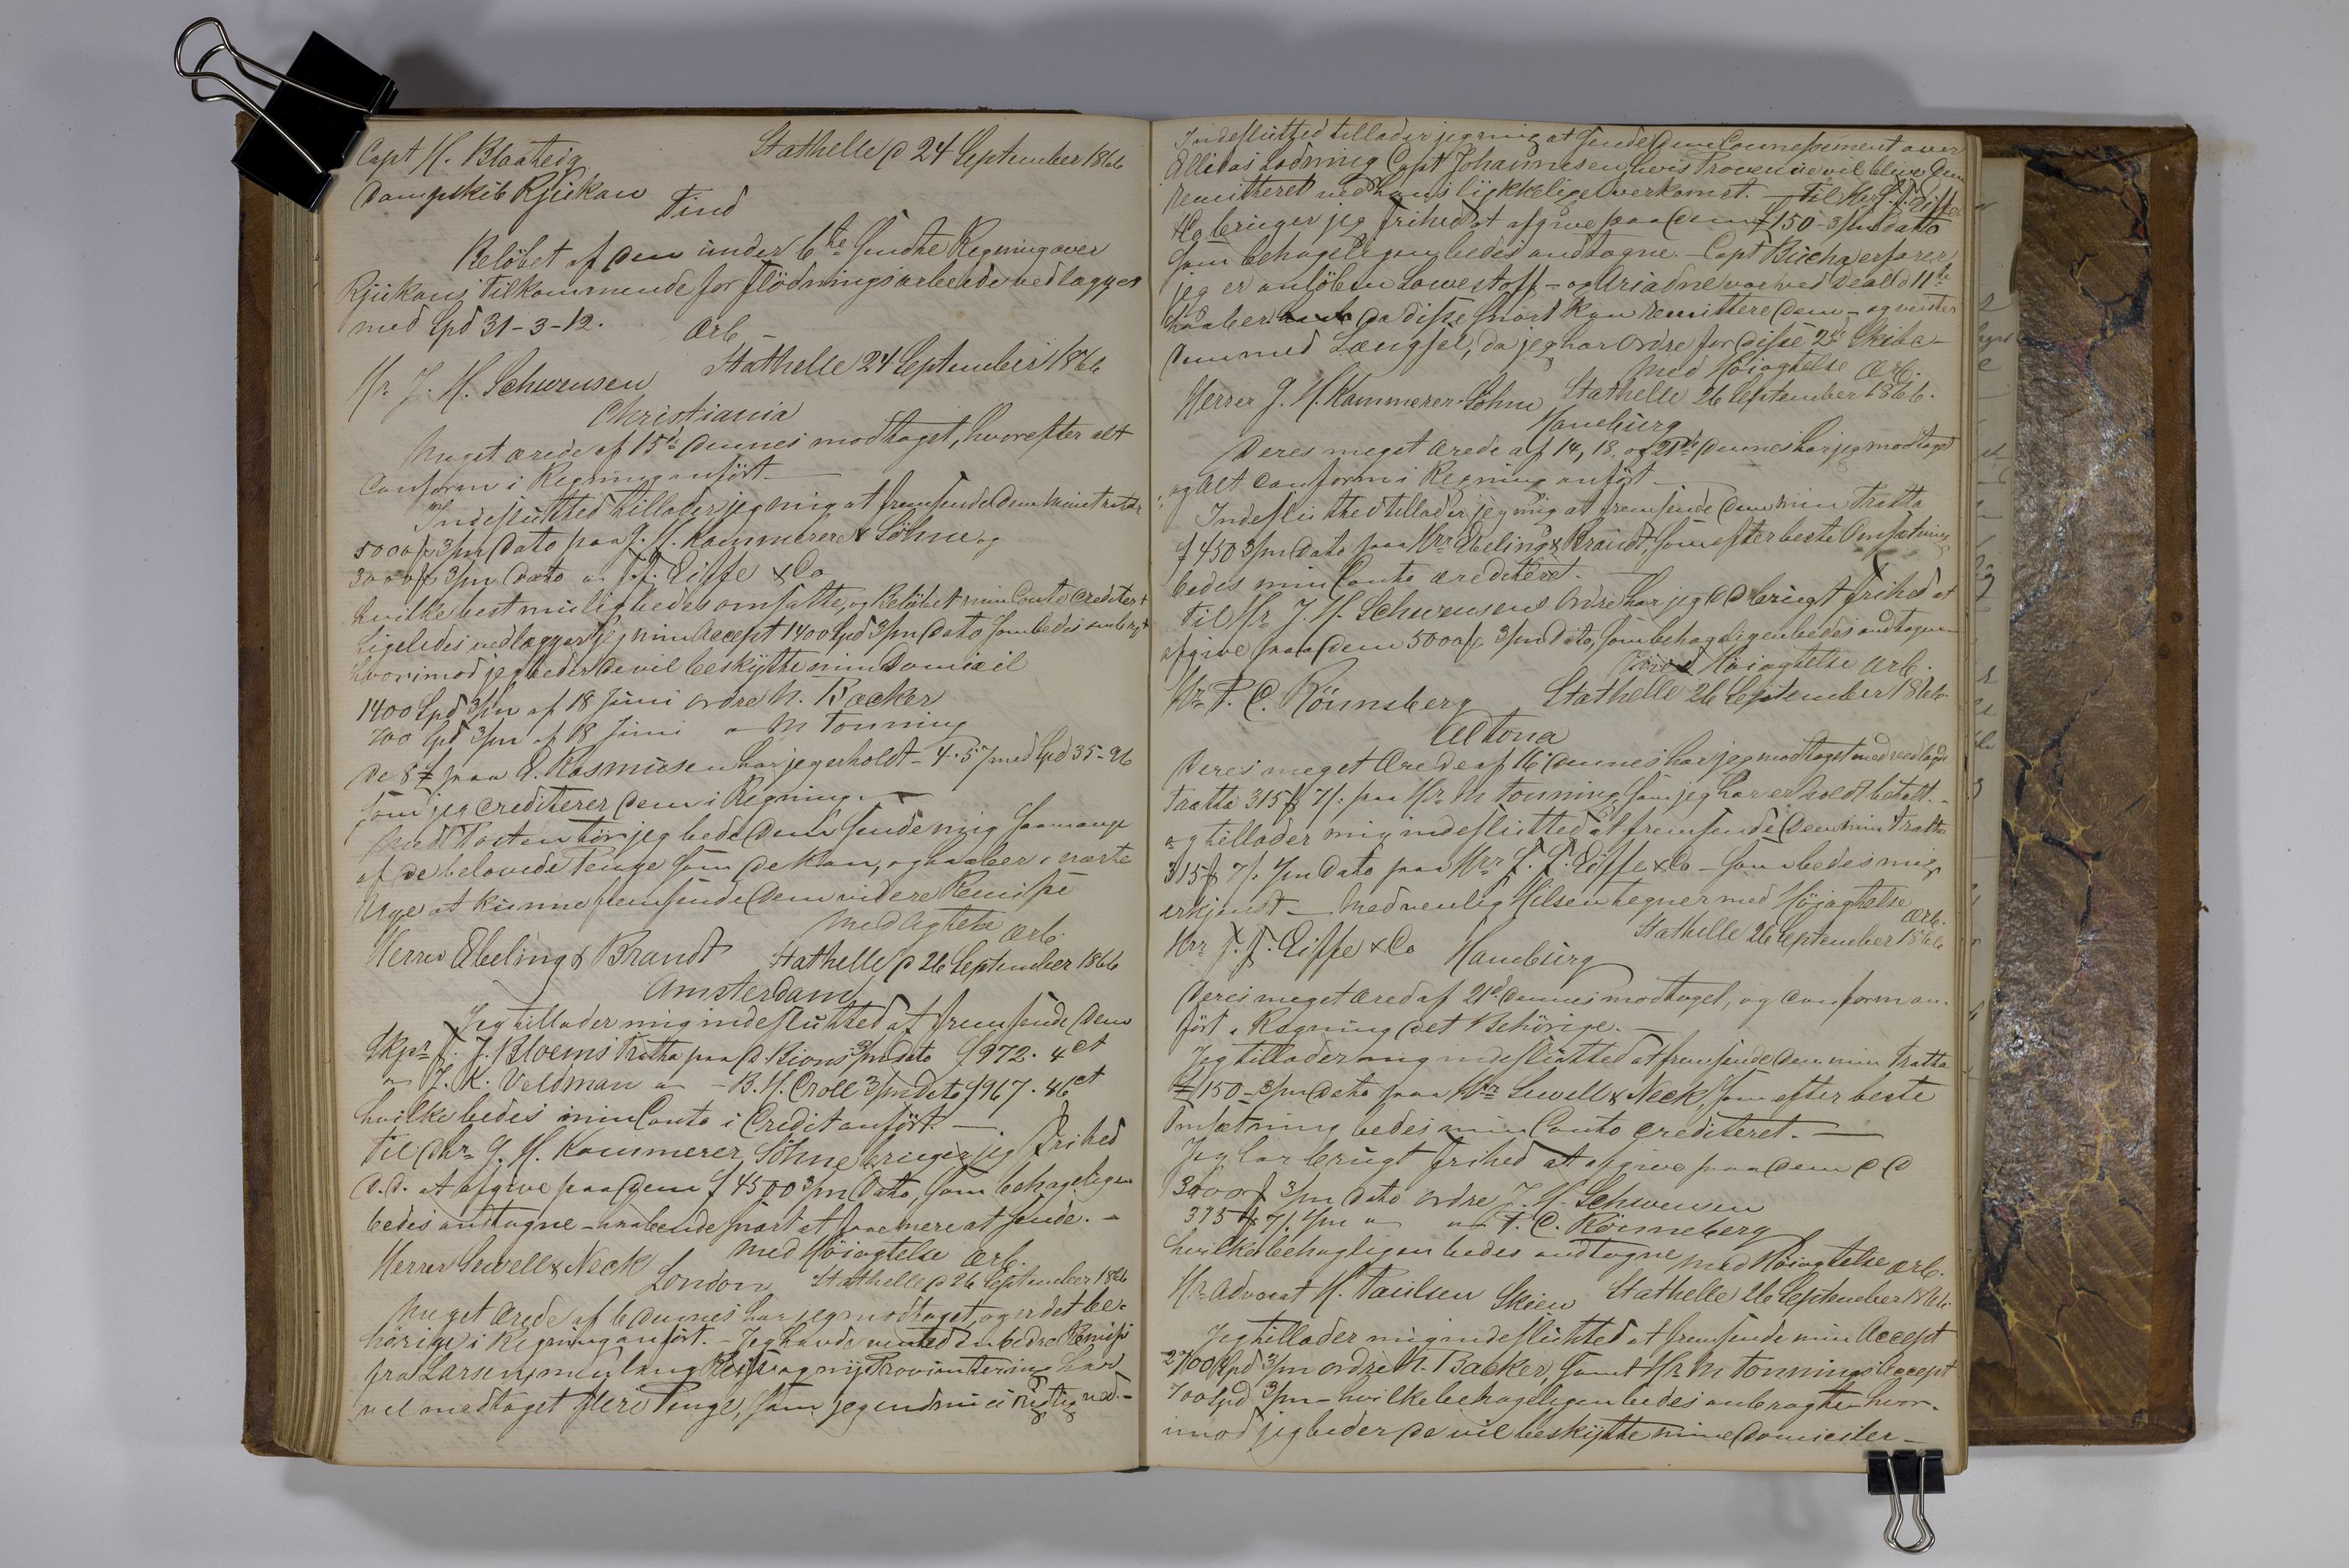 Capt H. Blaateig Stathelle D 24 September 1866
Dampskib Rjukan
Tind
Beløbet af Dem under 6te sendte Regning over
Rjukans Tilkommende for Flödningsarbeide vedlægges
med Spd 31-3-12.
Ærb.
Hr. J. H. Schwensen Stathelle 24 September 1866
Christiania
Meget ærede af 15de dennes modtaget, hvorefter alt
conform i Regning anfört.
Indesluttet tillader jeg mig at fremsende Dem mine tratter
5000 3/m Dato paa J. H. Kammerer & Söhne og
3000 3/m Dato " F. F. Eiffe & Co
hvilke best muligt bedes omsatte, og Belöbet min Conto crediteret
Ligeledes vedlægger jeg min Accept 1400 Spd 3/m Dato som bedes anbragt
hvorimod jeg beder De vil beskytte min Domicil
1400 Spd 3/m af 18 Juni ordre N. Backer
700 Spd 3/m af 18 Juni " M Tonning
De 8 £ paa E. Rasmusen har jeg erholdt - 4.57 med Spd 35-96
som jeg crediterer Dem i Regning.
Med Posten tör jeg bede Dem sende mig saamange
af De belovede Penge som De kan, og haaber i næste
Uge at kunne fremsende Dem videre Remisse
Med Agtelse Ærb.
Herrer Ebeling & Brandt Stathelle D 26 September 1866
Amsterdam
Jeg tillader mig indesluttet at fremsende Dem
Skpr F. J. Bloems Tratta paa D. Rions 3/m dato f 972. 4 ct
" J. K. Veldman " - B. H. Croll 3/m Dato f 967. 46 ct
hvilke bedes min Conto i Credit anfört.
Til Dhr. J. H. Kammerer Söhne bruger jeg Frihed
D.D. at afgive paa Dem f 4500 3/m Dato, som behageligen
bedes antagne - haabende snart at faae mere at sende. -
Med Høiagtelse Ærb.
Herrer Sewell & Neck London Stathelle D 26 September 1866
Meget ærede af 6 dennes har jeg modtaget, og er det be-
hörige i Regning anfört. - Jeg havde ventet en bedre Remisse
fra Larsen, men lang Reise og ny Proviantering har
vel modtaget flere Penge, som jeg endnu ei rigtig ved. -
Indesluttet tillader jeg mig at sende Dem Connossement over
Ellidas Ladning Capt Johannesen, hvis Provenue vil blive Dem
remitteret ved Hans lykkelige Overkomst. - Til Hrr F. F. Eiffe
& Co bruger jeg Frihed at afgive paa Dem £ 150 - 3/m Dato
som behageligen bedes antagne. - Capt Bucha erfarer
jeg er anlöben Lowestoff - og Ariadne var ved Deal D 11te
haaber da disse snart kan remittere Dem - og venter
Dem med Længsel, da jeg har Ordre for disse 2de Skibe -
Med Höiagtelse Ærb.
Herrer J. H. Kammerer Söhne Stathelle 26 September 1866.
Hamburg
Deres meget ærede af 14, 18, og 21de dennes har jeg modtaget
og alt conform i Regning anfört
Indesluttet tillader jeg mig at fremsende Dem min Tratta
f 4500 3/m Dato paa Hrr Ebeling & Brandt, som efter beste Omsætning
bedes min Conto crediteret.
Til Hr J. H. Schwensens ordre har jeg DD brugt Frihed at
afgive paa Dem 5000 3/m Dato, som behageligen bedes antagne
Med Høiagtelse Ærb.
Hr P. C. Rönneberg Stathelle 26 September 1866
Altona
Deres meget ærede af 16 dennes har jeg modtaget med vedlagte
Tratta 315 7/. paa Hr M Tonning, som jeg har erholdt betalt. -
og tillader mig indesluttet at fremsende Dem min Tratta
315 7/. 4/m Dato paa Hrr F. F. Eiffe & Co - som bedes mig
erkjendt - Med venlig Hilsen tegner med Höjagtelse
Ærb.
Hrr F. F. Eiffe & Co Hamburg Stathelle 26 September 1866
Deres meget ærede af 21de dennes modtaget, og conform an-
fört i Regning det Behörige. -
Jeg tillader mig indesluttet at fremsende Dem min Tratta
£ 150 - 3/m Dato paa Hrr Sewell & Neck, som efter beste
Omsætning bedes min Conto crediteret. -
Jeg har brugt Frihed at afgive paa Dem DD
3000 3/m Dato ordre J. H. Schwensen
315 7/. 4/m " " P. C. Rönneberg
hvilket behageligen bedes antagne Med Höiagtelse Ærb.
Hr. Advocat H. Paulsen Skien Stathelle 26 September 1866
Jeg tillader mig indesluttet at fremsende min Accept
2700 Spd 3/m ordre N. Backer, samt Hr M Tonnings Accept
700 Spd 3/m - hvilke behageligen bedes anbragte - hvor-
imod jeg beder De vil beskytte mine Domiciler -